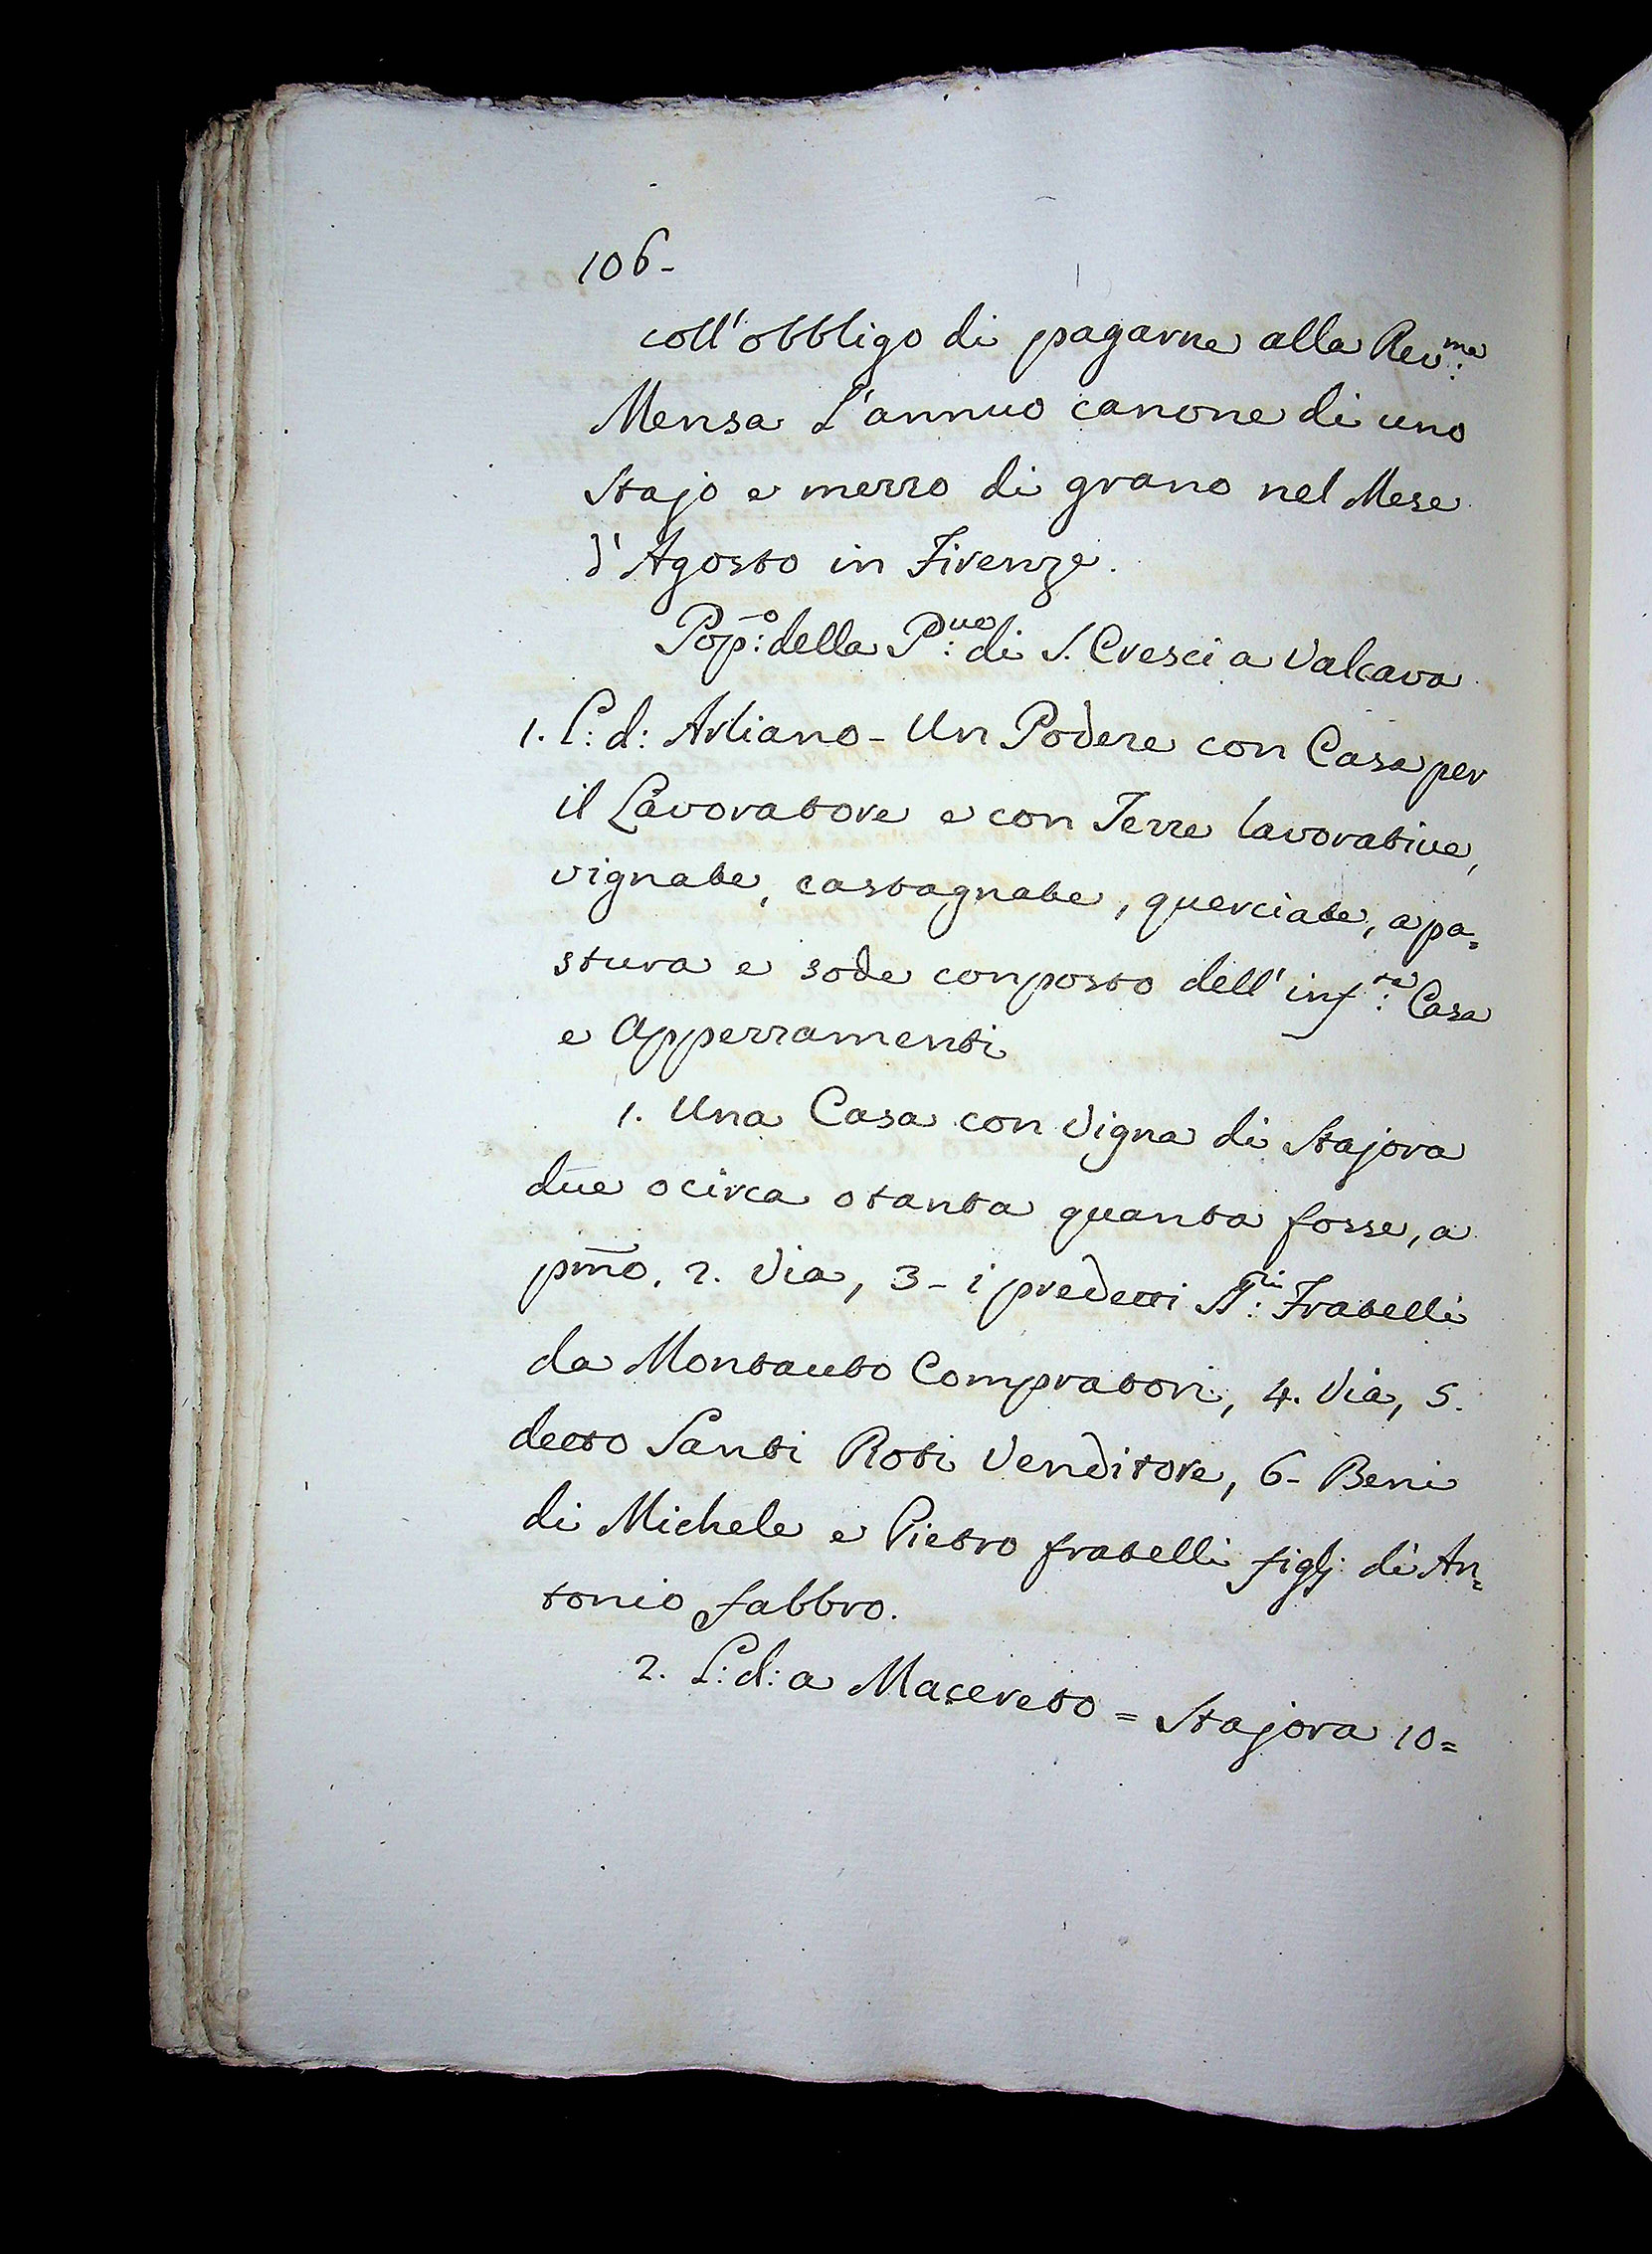 106-
coll'obbligo di pagarne alla Rev:ma
Mensa L'annuo canone di uno
Stajo e mezzo di grano nel Mese
d'Agosto in Firenze.
Pop:o della P:ve di S. Cresci a Valcava
1. L: d: Arliano - Un Podere con Casa per
il Lavoratore e con Terre lavorative,
vignate, castagnate, querciate, a pa=
stura e sode conposto dell'inf:te Casa
e Appezzamenti
1. Una Casa con Vigna di Stajora
due o circa o tanta quanta fosse, a
pmo. 2. Via, 3 - i predetti SS:ri Fratelli
da Montauto Compratori, 4. Via, 5.
detto Santi Roti Venditore, 6 - Beni
di Michele e Pietro fratelli figlj di An=
tonio fabbro.
2. L: d: a Macereto = Stajora 10=